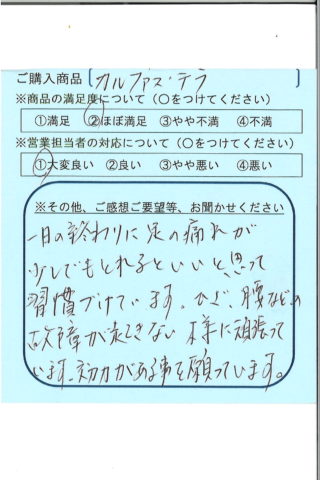 ご購入商品〔カルファス・テラ
※商品の満足度について（○をつけてください）
①満足 ②ほぼ満足 ③やや不満 ④不満
※営業担当者の対応について（○をつけてください）
①大変良い ②良い ③やや悪い ④悪い
※その他、ご感想ご要望等、お聞かせください
一日の終わりに足の痛れが
少しでもとれるといいと思って
習慣づけています。ひざ、腰などの
故障が起きない様に頑張って
います。効力がある事を願っています。